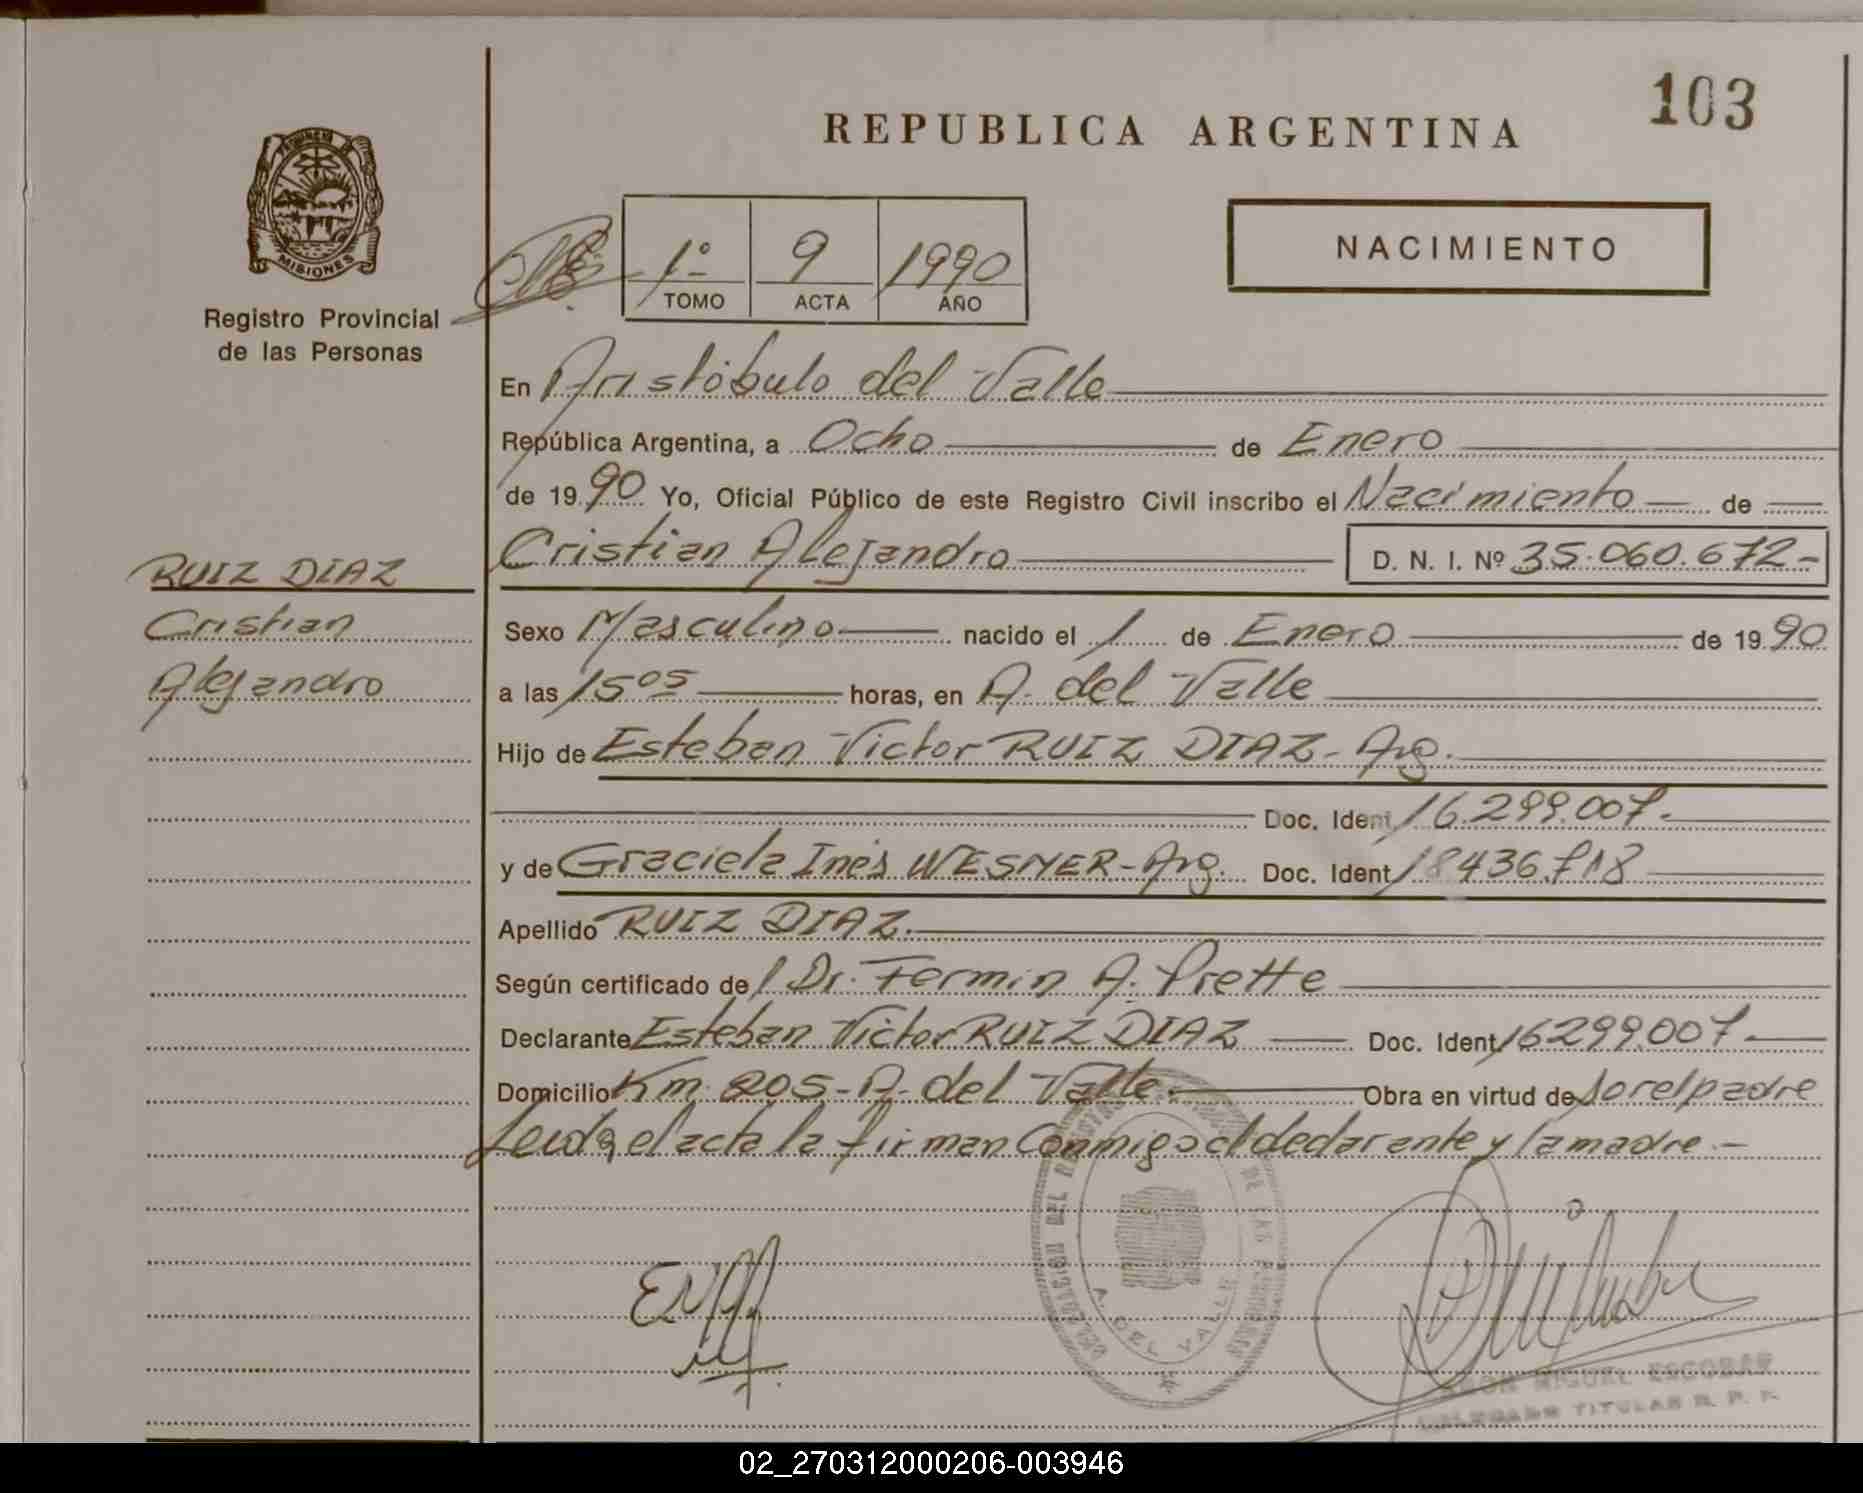 103
REPUBLICA ARGENTINA
MISIONES
Registro Provincial
de las Personas
1º 9 1990
TOMO ACTA AÑO
NACIMIENTO
En Aristóbulo del Valle
República Argentina, a Ocho de Enero
de 1990 Yo, Oficial Público de este Registro Civil inscribo el Nacimiento de
Cristian Alejandro D. N. I. Nº 35.060.672-
RUIZ DIAZ
Cristian
Alejandro
Sexo Masculino nacido el 1 de Enero de 1990
a las 15 05 horas, en A. del Valle
Hijo de Esteban Victor RUIZ DIAZ - Arg.
Doc. Ident. 16.299.007.
y de Graciela Inés WESNER - Arg. Doc. Ident. 18436.718
Apellido RUIZ DIAZ.
Según certificado del Dr. Fermin A. Prette
Declarante Esteban Victor RUIZ DIAZ Doc. Ident. 16299.007
Domicilio Km. 205 - A. del Valle. Obra en virtud de ser el padre
Leida el acta la firman conmigo el declarante y la madre.-
A. DEL VALLE
MIGUEL ESCOBAR
DELEGADO TITULAR R. P. P.
02_270312000206-003946